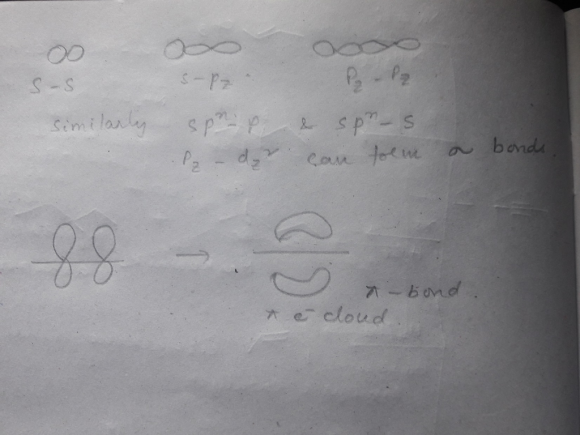 s-s s-pz pz-pz
similarly spⁿ-p & spⁿ-s
pz - dz² can form σ bonds.
π-bond.
π e⁻ cloud.